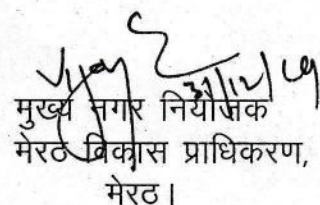 31/12/19
मुख्य नगर नियोजक
मेरठ विकास प्राधिकरण,
मेरठ।